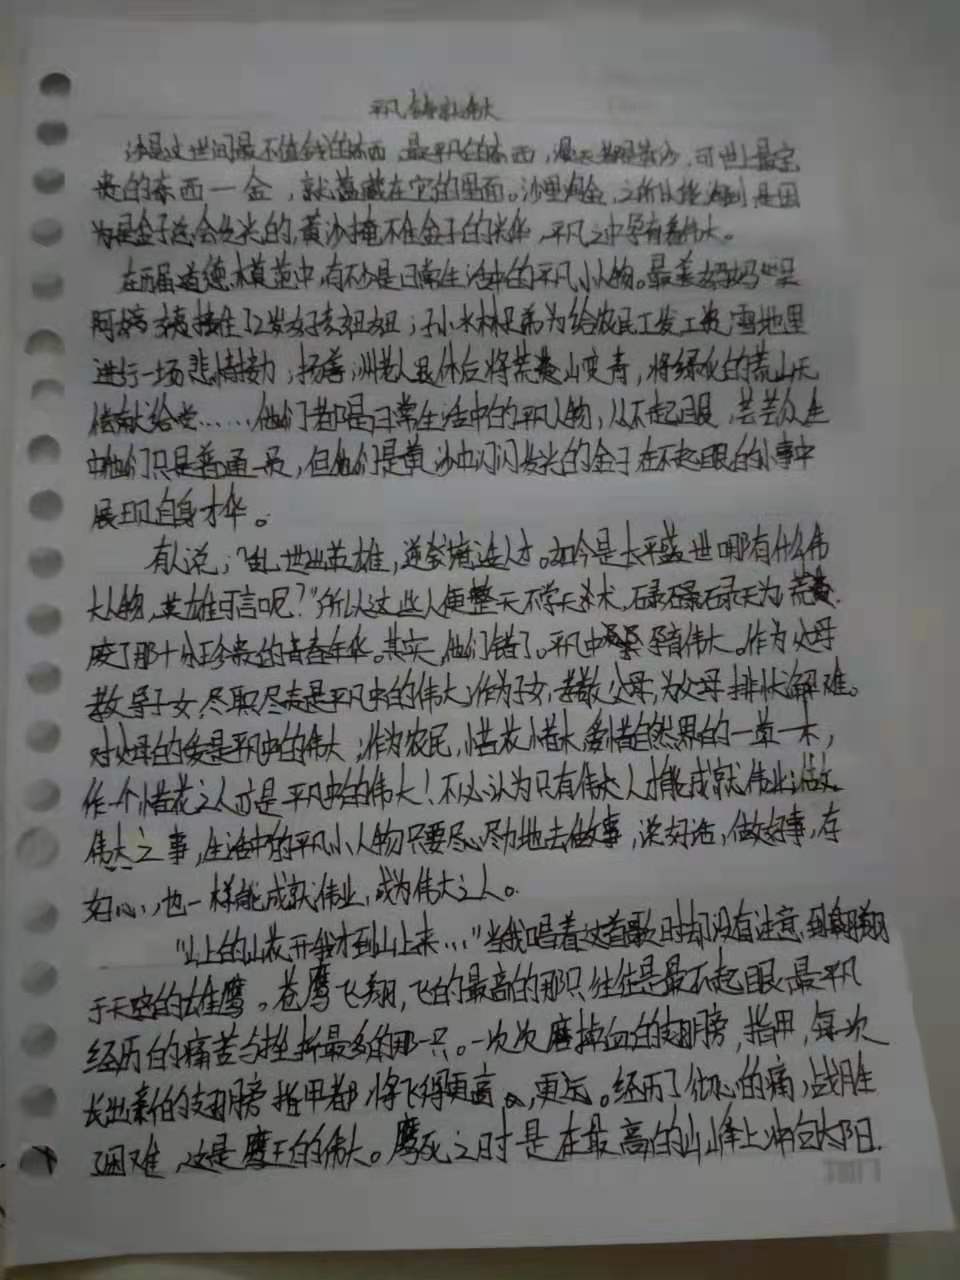 平凡铸就伟大
沙是这世间最不值钱的东西,最平凡的东西,漫天黄沙,可世上最宝
贵的东西一金,就蕴藏在它的里面。沙里淘金,之所以能淘到是因
为是金子总会发光的,黄沙掩不住金子的光华,平凡之中孕育着伟大。
在历届道德模范中,有不少是日常生活中的平凡小人物。最美妈妈吴
阿婷接住了2岁女孩妞妞;孙水林兄弟为给农民工发工资,雪地里
进行一场悲情接力;杨善洲老人退休后将荒山变青,将绿化的荒山无
偿献给党……他们都是日常生活中的平凡人物,从不起眼,芸芸众生
中他们只是普通一员,但他们是黄沙中闪闪发光的金子在不起眼的小事中
展现自身才华。
有人说;"乱世出英雄,逆著造人才。如今是太平盛世哪有什么伟
大人物,英雄可言呢?"所以这些人便整天不学无术,碌碌碌无为,荒
废了那十分珍贵的青春年华。其实,他们错了。平凡中孕育伟大。作为父母
教导子女,尽职尽责是平凡中的伟大;作为子女,孝敬父母,为父母排忧解难。
对父母的爱是平凡中的伟大;作为农民,惜花惜木,爱惜自然界的一草一木,
作一个惜花之人亦是平凡中的伟大!不必认为只有伟大人才能成就伟业;做
伟大之事,生活中的平凡小人物只要尽心尽力地去做事,说好话,做好事,存
好心,也一样能成就伟业,成为伟大之人。
"山上的山花开我才到山上来…"当我唱着这首歌时却没有注意到翱翔
于天空的雄鹰。苍鹰飞翔,飞的最高的那只往往是最不起眼,最平凡
经历的痛苦与挫折最多的那一只。一次次磨掉血的翅膀,指甲,每一次
长出新的翅膀指甲都将飞得更高,更远。经历了彻心的痛,战胜
了困难,这是鹰王的伟大。鹰死之时是在最高的山峰上冲向太阳.